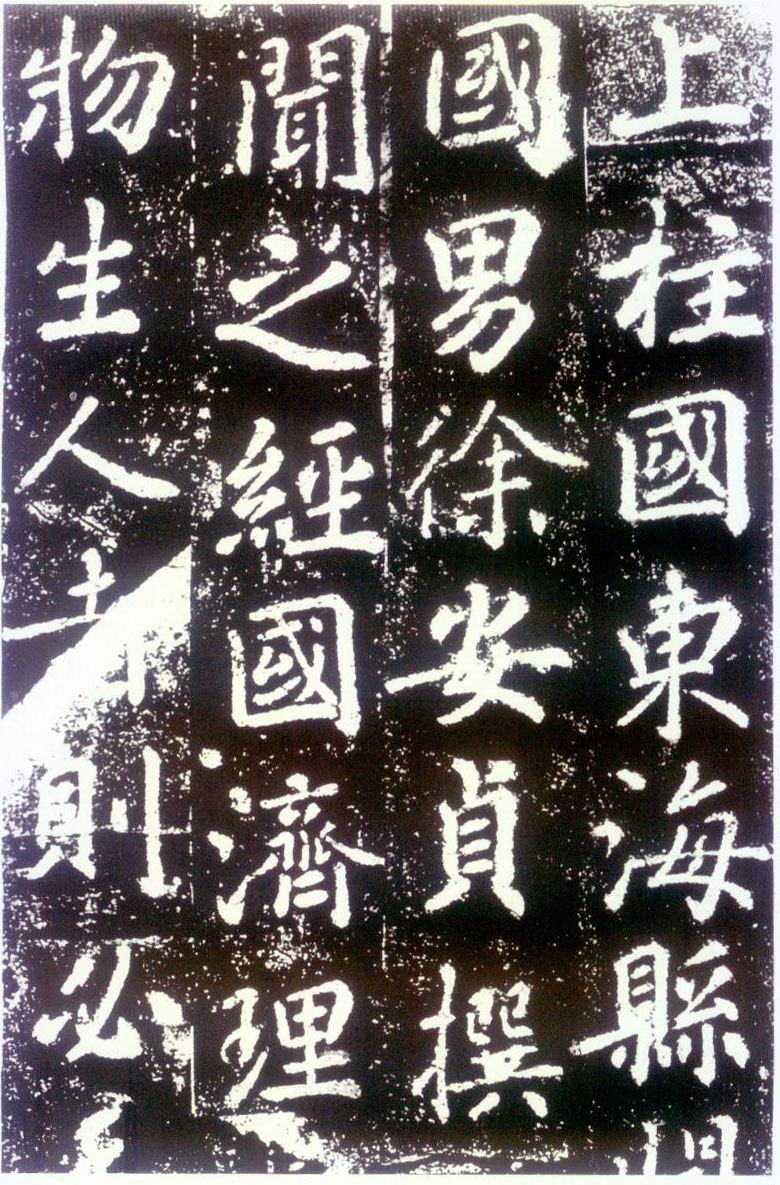 上柱國東海縣
國男徐安貞撰
聞之經國濟理
物生人則必